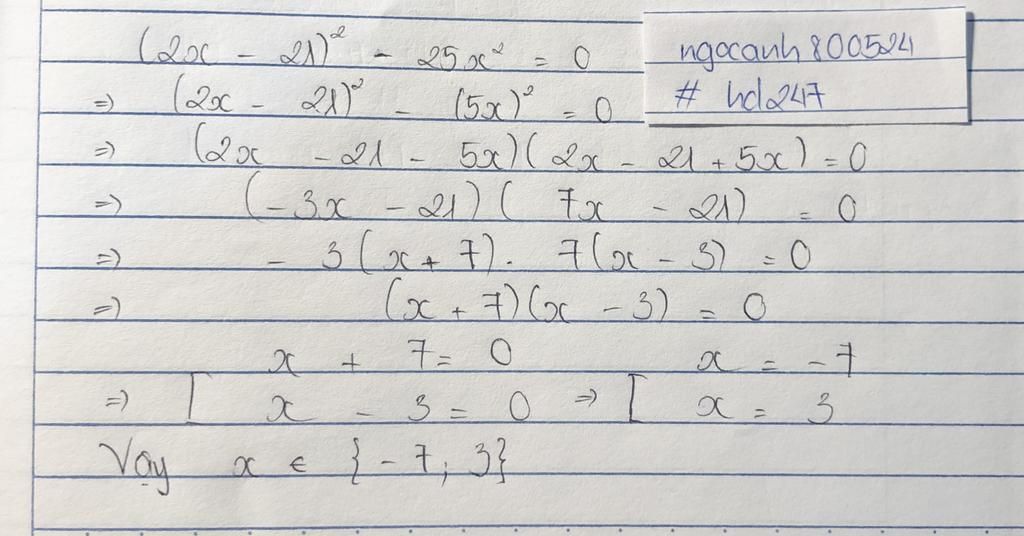 (2x - 21)² - 25x² = 0
=> (2x - 21)² - (5x)² = 0
=> (2x - 21 - 5x)(2x - 21 + 5x) = 0
=> (-3x - 21)(7x - 21) = 0
=> -3(x + 7). 7(x - 3) = 0
=> (x + 7)(x - 3) = 0
x + 7 = 0 x = -7
=> [ x - 3 = 0 => [ x = 3
Vậy x ∈ {-7; 3}
ngocanh800524
# hd247